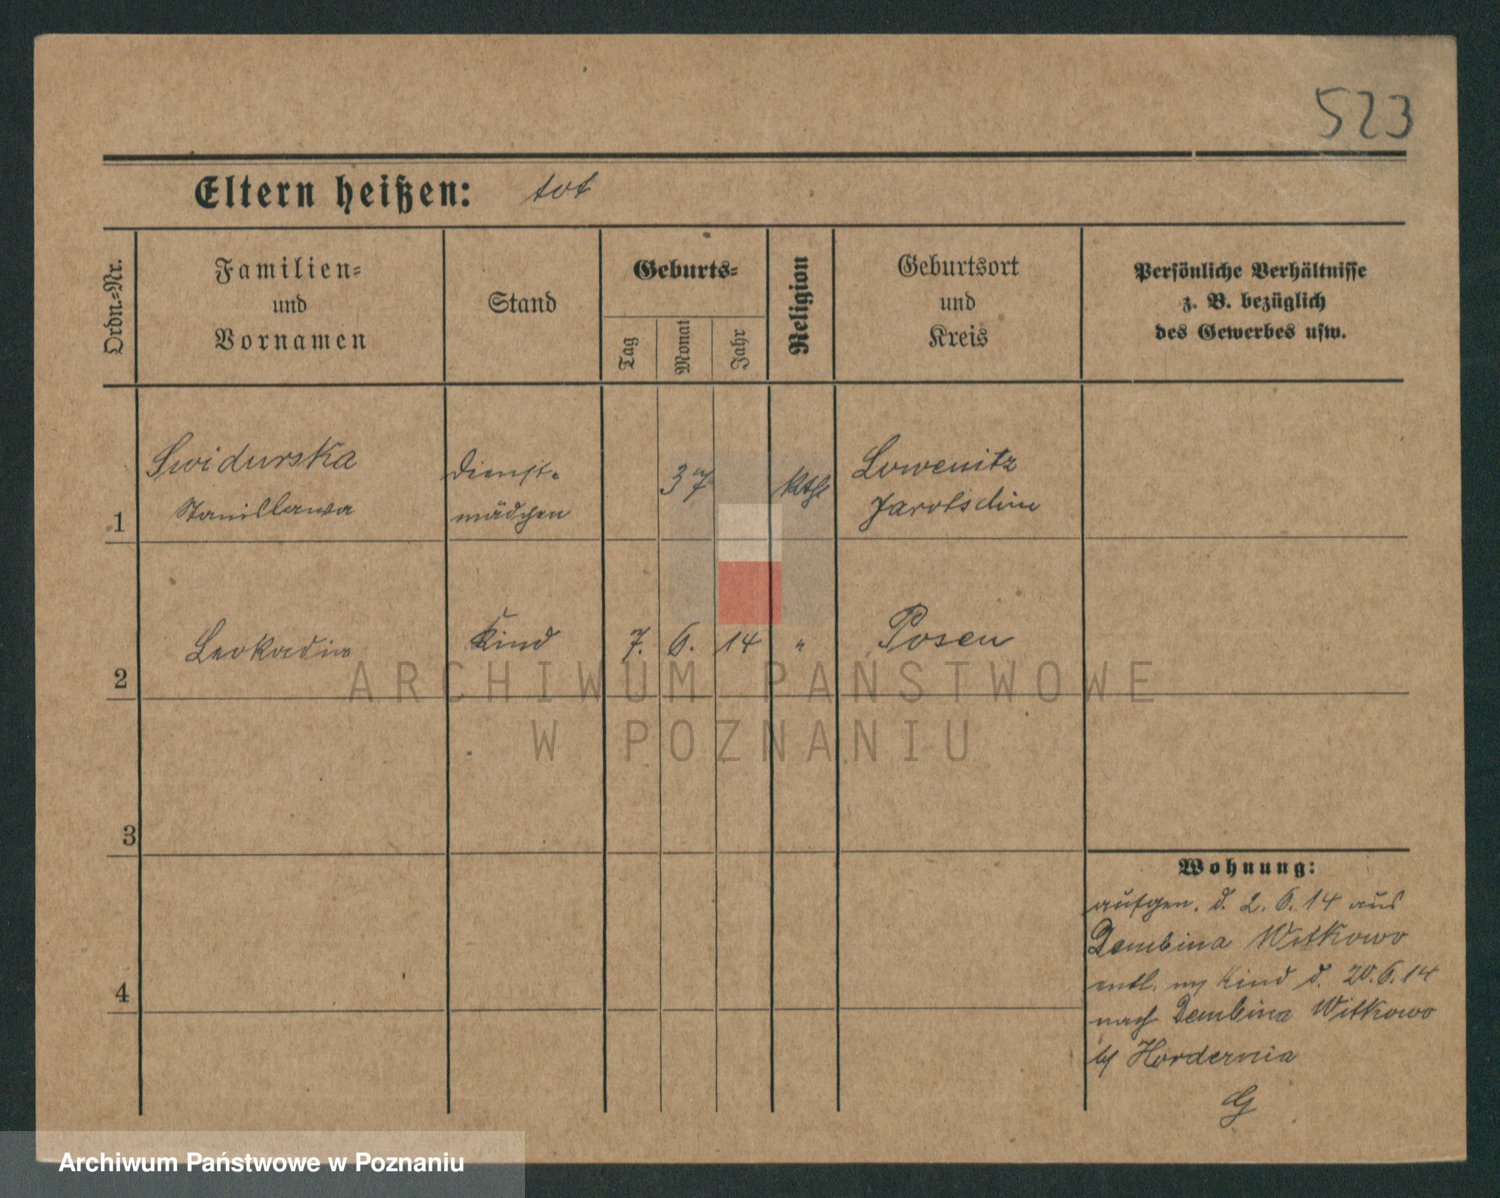 523
Eltern heißen: tot
Ordn.-Nr.
Familien-
und
Vornamen
Stand
Geburts-
Tag
Monat
Jahr
Religion
Geburtsort
und
Kreis
Persönliche Verhältnisse
z. B. bezüglich
des Gewerbes usw.
1
Swidurska
Stanislawa
Dienst-
mädchen
37
kath
Lowenitz
Jarotschin
2
Leokadia
Kind
7. 6. 14
"
Posen
3
4
Wohnung:
aufgen. d. 2. 6. 14 aus
Dembina Witkowo
entl. m Kind d. 20. 6. 14
nach Dembina Witkowo
G
ARCHIWUM PAŃSTWOWE
W POZNANIU
Archiwum Państwowe w Poznaniu